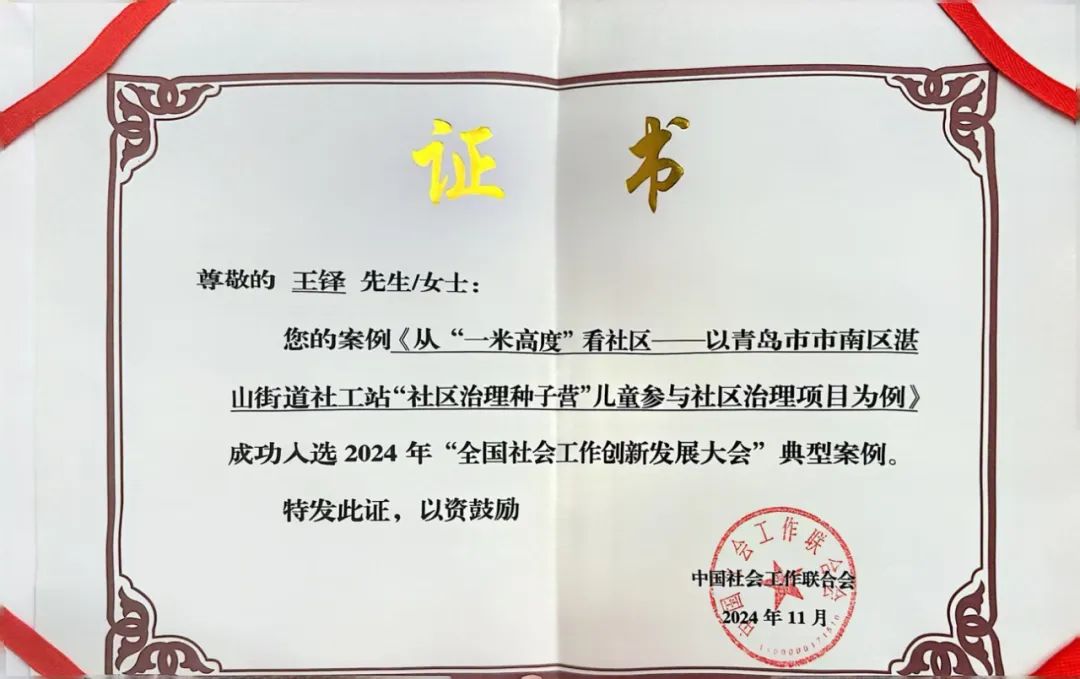 证 书
尊敬的 王铎 先生/女士：
您的案例《从“一米高度”看社区——以青岛市市南区湛
山街道社工站“社区治理种子营”儿童参与社区治理项目为例》
成功入选 2024 年“全国社会工作创新发展大会”典型案例。
特发此证，以资鼓励
中国社会工作联合会
中国社会工作联合会
2024 年 11 月